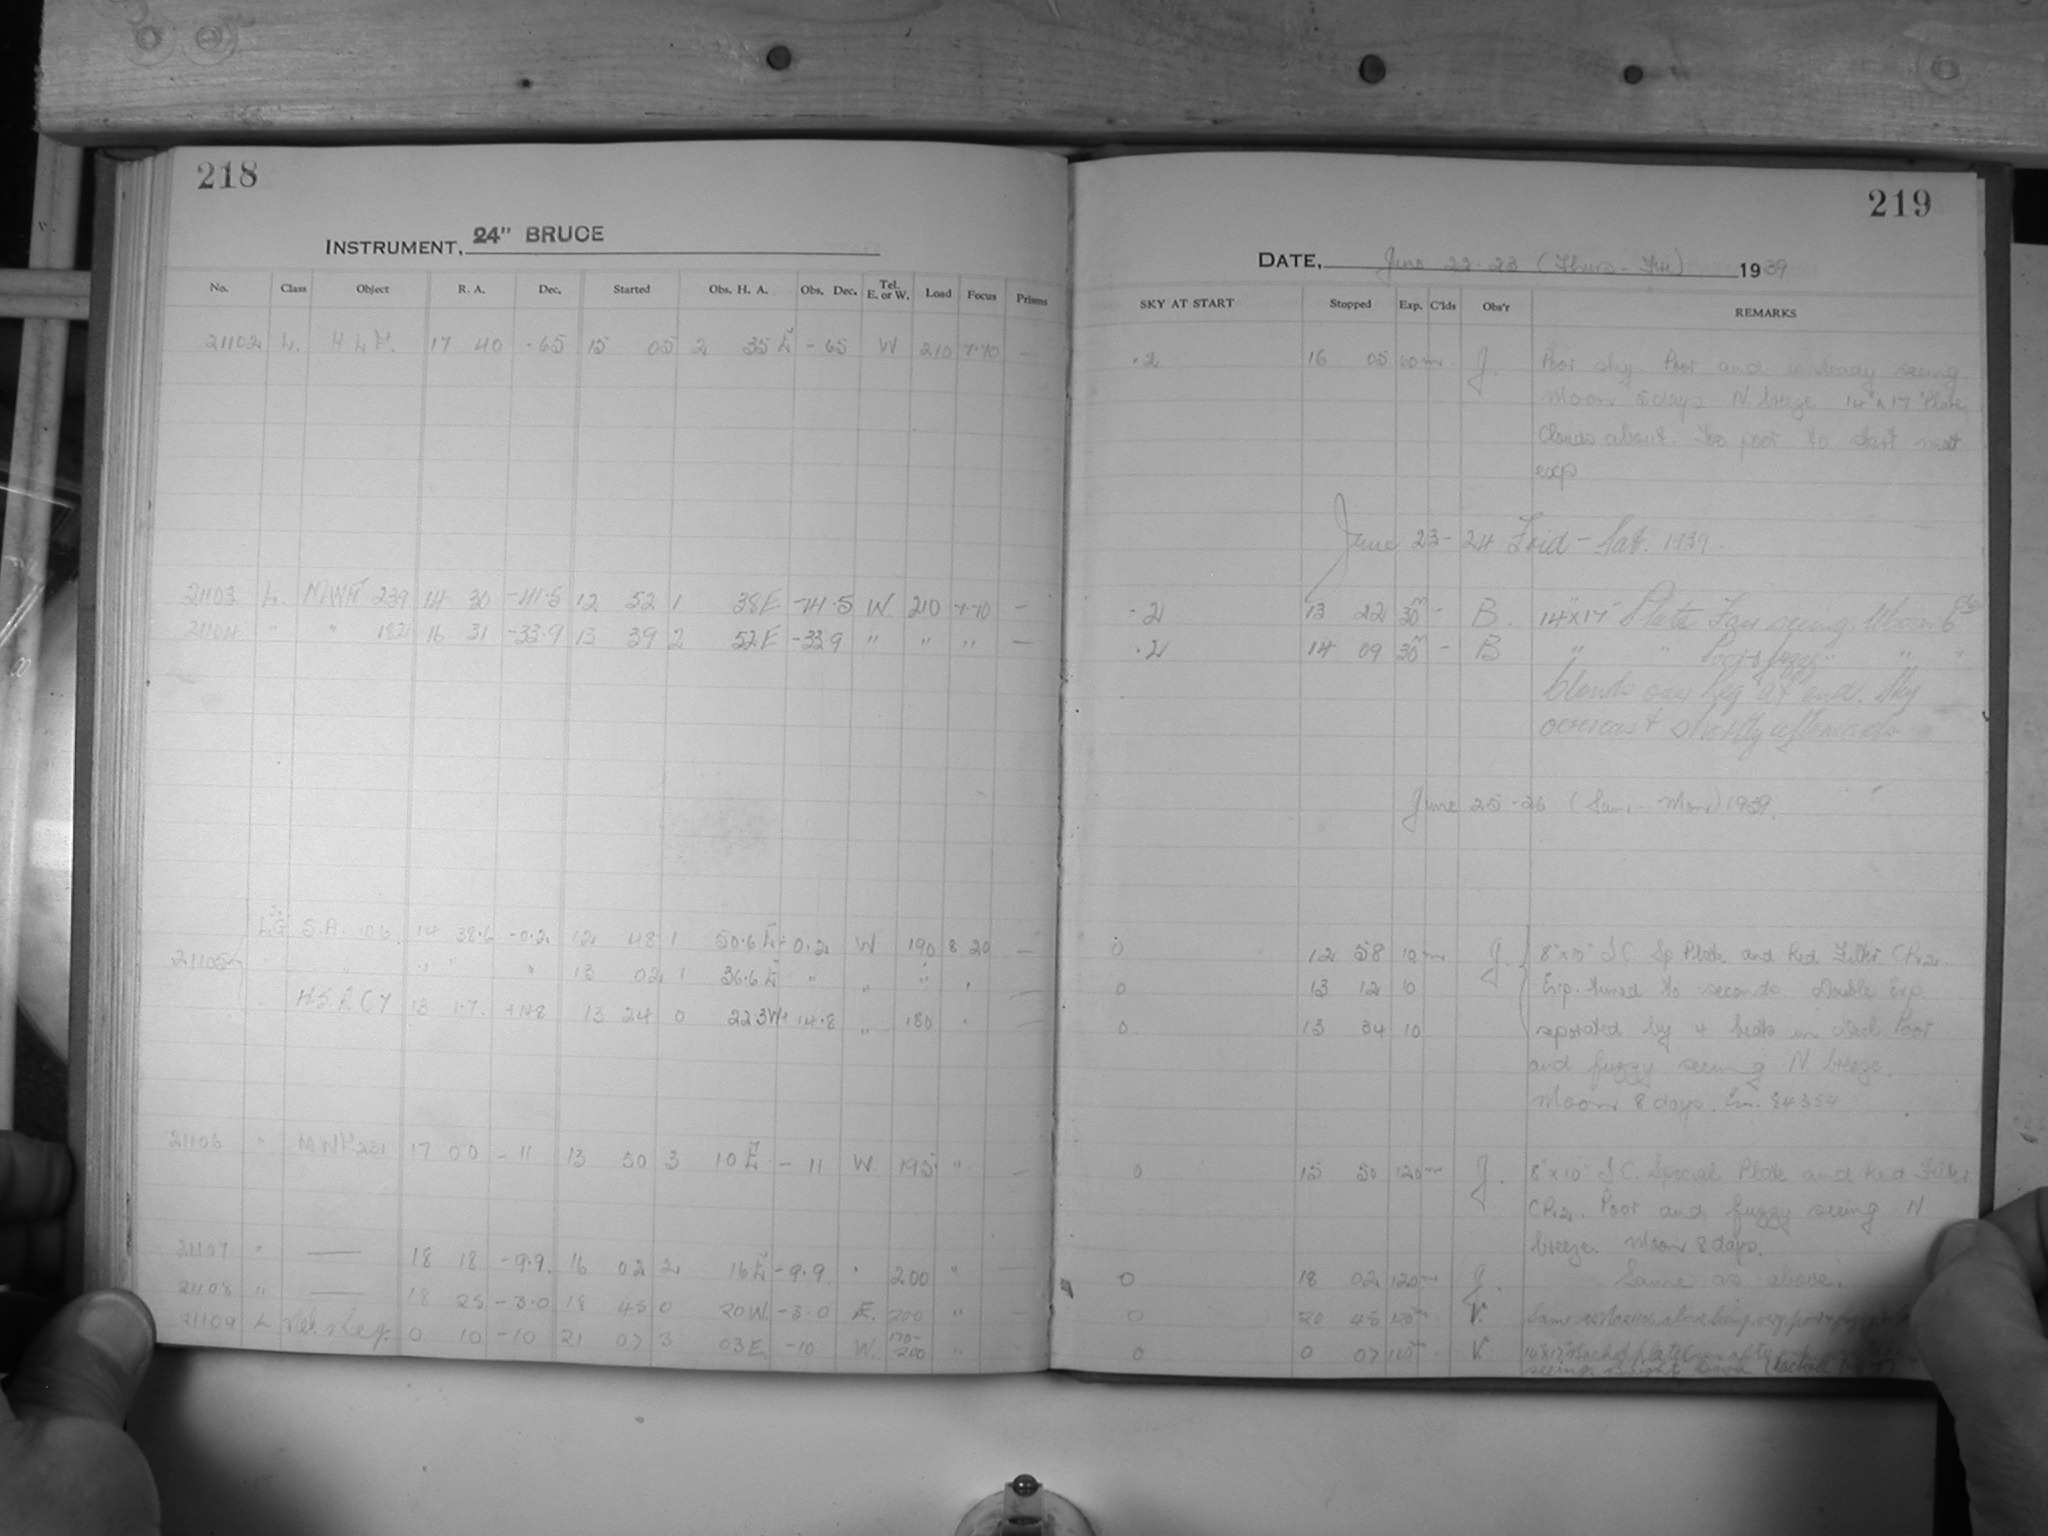 218
INSTRUMENT, 24" BRUCE
No. Class Object R. A. Dec. Started Obs. H. A. Obs. Dec. Tel. E. or W. Load Focus Prisms
21102 L. 17 40 -65 15 05 2 35 E -65 W 210 7.70 —
21103 L. MWF 239 14 30 -41.5 12 52 1 38E -41.5 W 210 7.70 —
21104 " " 182 16 31 -33.9 13 39 2 52E -33.9 " " " —
S.A. 106 14 38.6 -0.2 12 48 1 50.6 E 0.2 W 190 8 20 —
21105 " " 13 02 1 36.6 E " " "
13 1.7 +14.8 13 24 0 22.3W +14.8 " 180
21106 " MWF 201 17 00 -11 13 50 3 10 E -11 W 195 " —
21107 " — 18 18 -9.9 16 02 2 16 E -9.9 " 200 "
21108 " — 18 25 -3.0 18 45 0 20W -3.0 E. 200 "
21109 L 0 10 -10 21 07 3 03E -10 W 170-200 "
219
DATE, June 22-23 (Thurs - Fri) 1939
SKY AT START Stopped Exp. C'lds Obs'r REMARKS
.2 16 05 60m J. Poor sky. Poor and unsteady seeing.
Moon 5 days N. breeze 14"x17" Plate
Clouds about Too poor to start next
exp
June 23-24 Frid - Sat. 1939.
.2 13 22 30m - B. 14"x17" Plate Fair seeing. Moon 6
.2 14 09 30m - B " " Poor & fuzzy " "
Clouds over Reg at end. Sky
overcast shortly afterwards
June 25-26 (Sun - Mon) 1939.
0 12 58 10m J. 8"x10" I.C. Sp Plate and Red Filter
0 13 12 10 Exp. timed to seconds. Double Exp.
0 13 34 10 separated by 4 beats in Decl. Poor
and fuzzy seeing N breeze.
Moon 8 days. Em. 84354
0 15 50 120m J. 8"x10" I.C. Special Plate and Red Filter
Poor and fuzzy seeing N
breeze Moon 8 days.
0 18 02 120m J. Same as above.
0 20 45 120m V. Same
0 0 07 V.